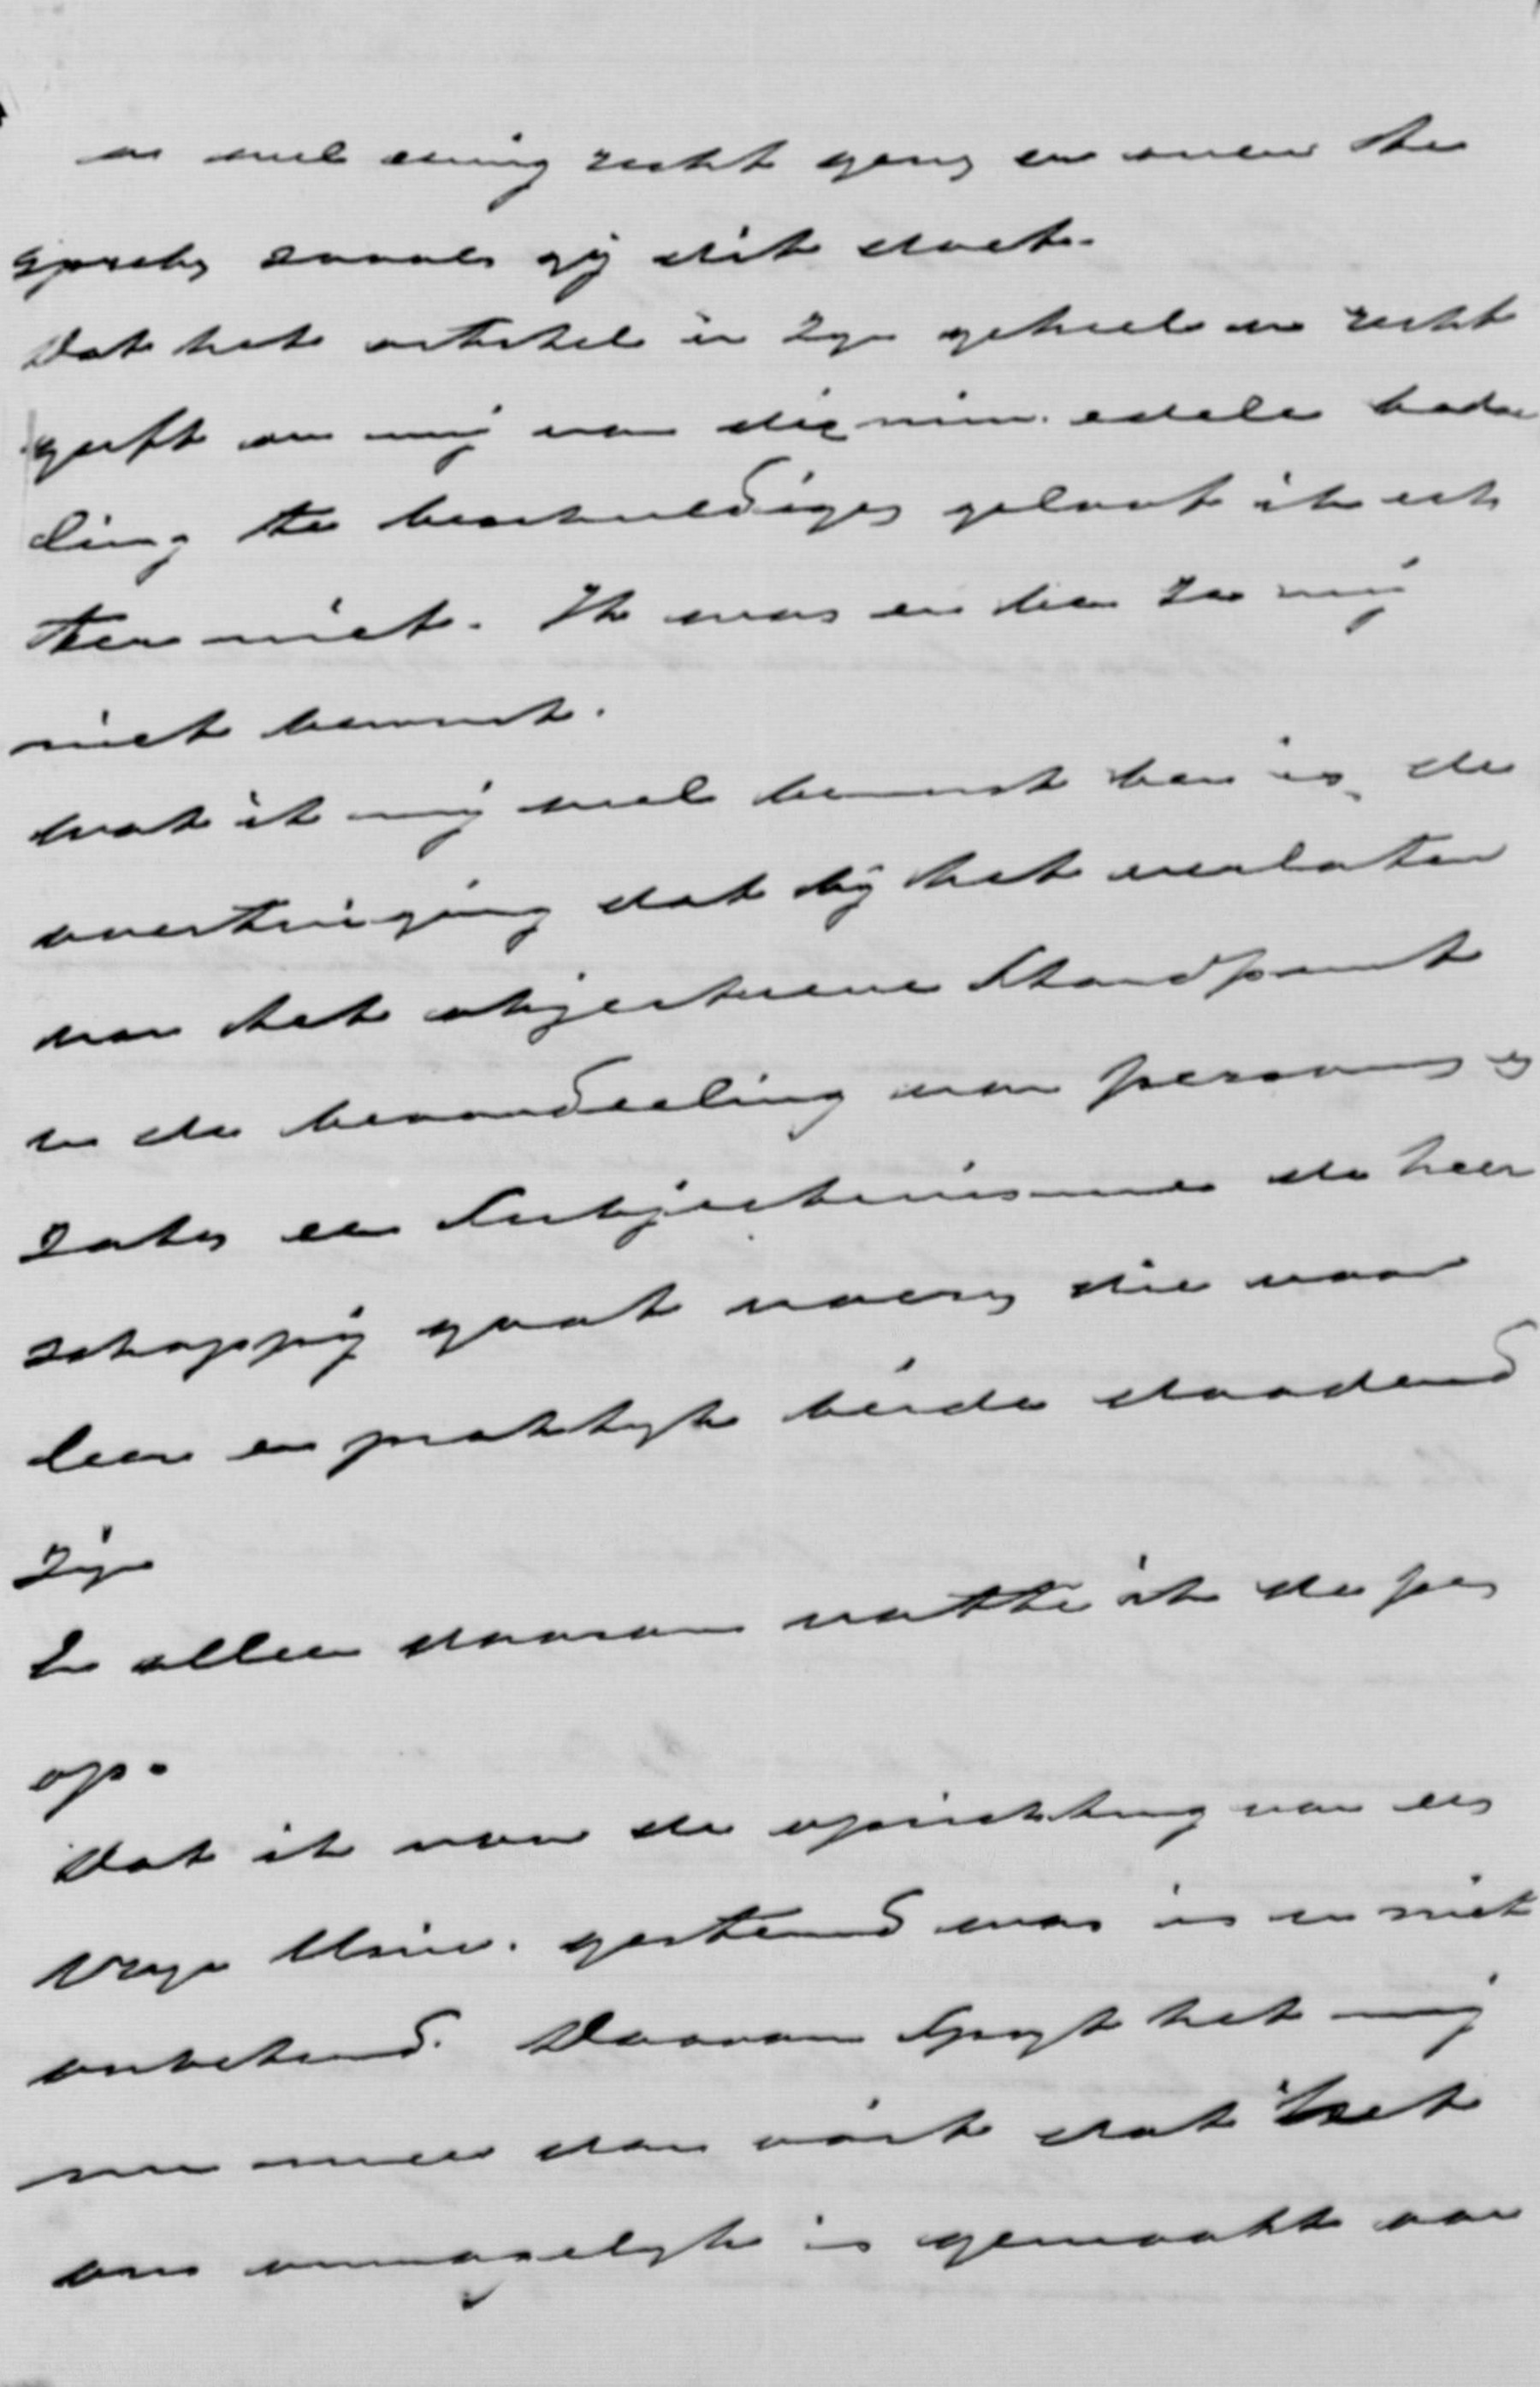 u wel eenig recht geven er over te
spreken zooals gij dit doet.
Dat het artikel in zijn geheel u recht
geeft om mij van die min. edele hande
ling te beschuldigen geloof ik ech
ter niet. Ik was en ben ze mij
niet bewust.
Wat ik mij wel bewust ben is, de
overtuiging dat bij het verlaten
van het objectieve standpunt
in de beoordeeling van personen en
zaken een subjectivisme de heer
schappij gaat voeren die voor
leer en praktijk beide doodend
zijn
En alleen daarom vatte ik de pen
op.
Dat ik voor de oprichting van een
Vrije Univ. gestemd was is u niet
onbekend. Daarom spijt het mij
nu meer dan ooit dat het
ons onmogelijk is gemaakt aan